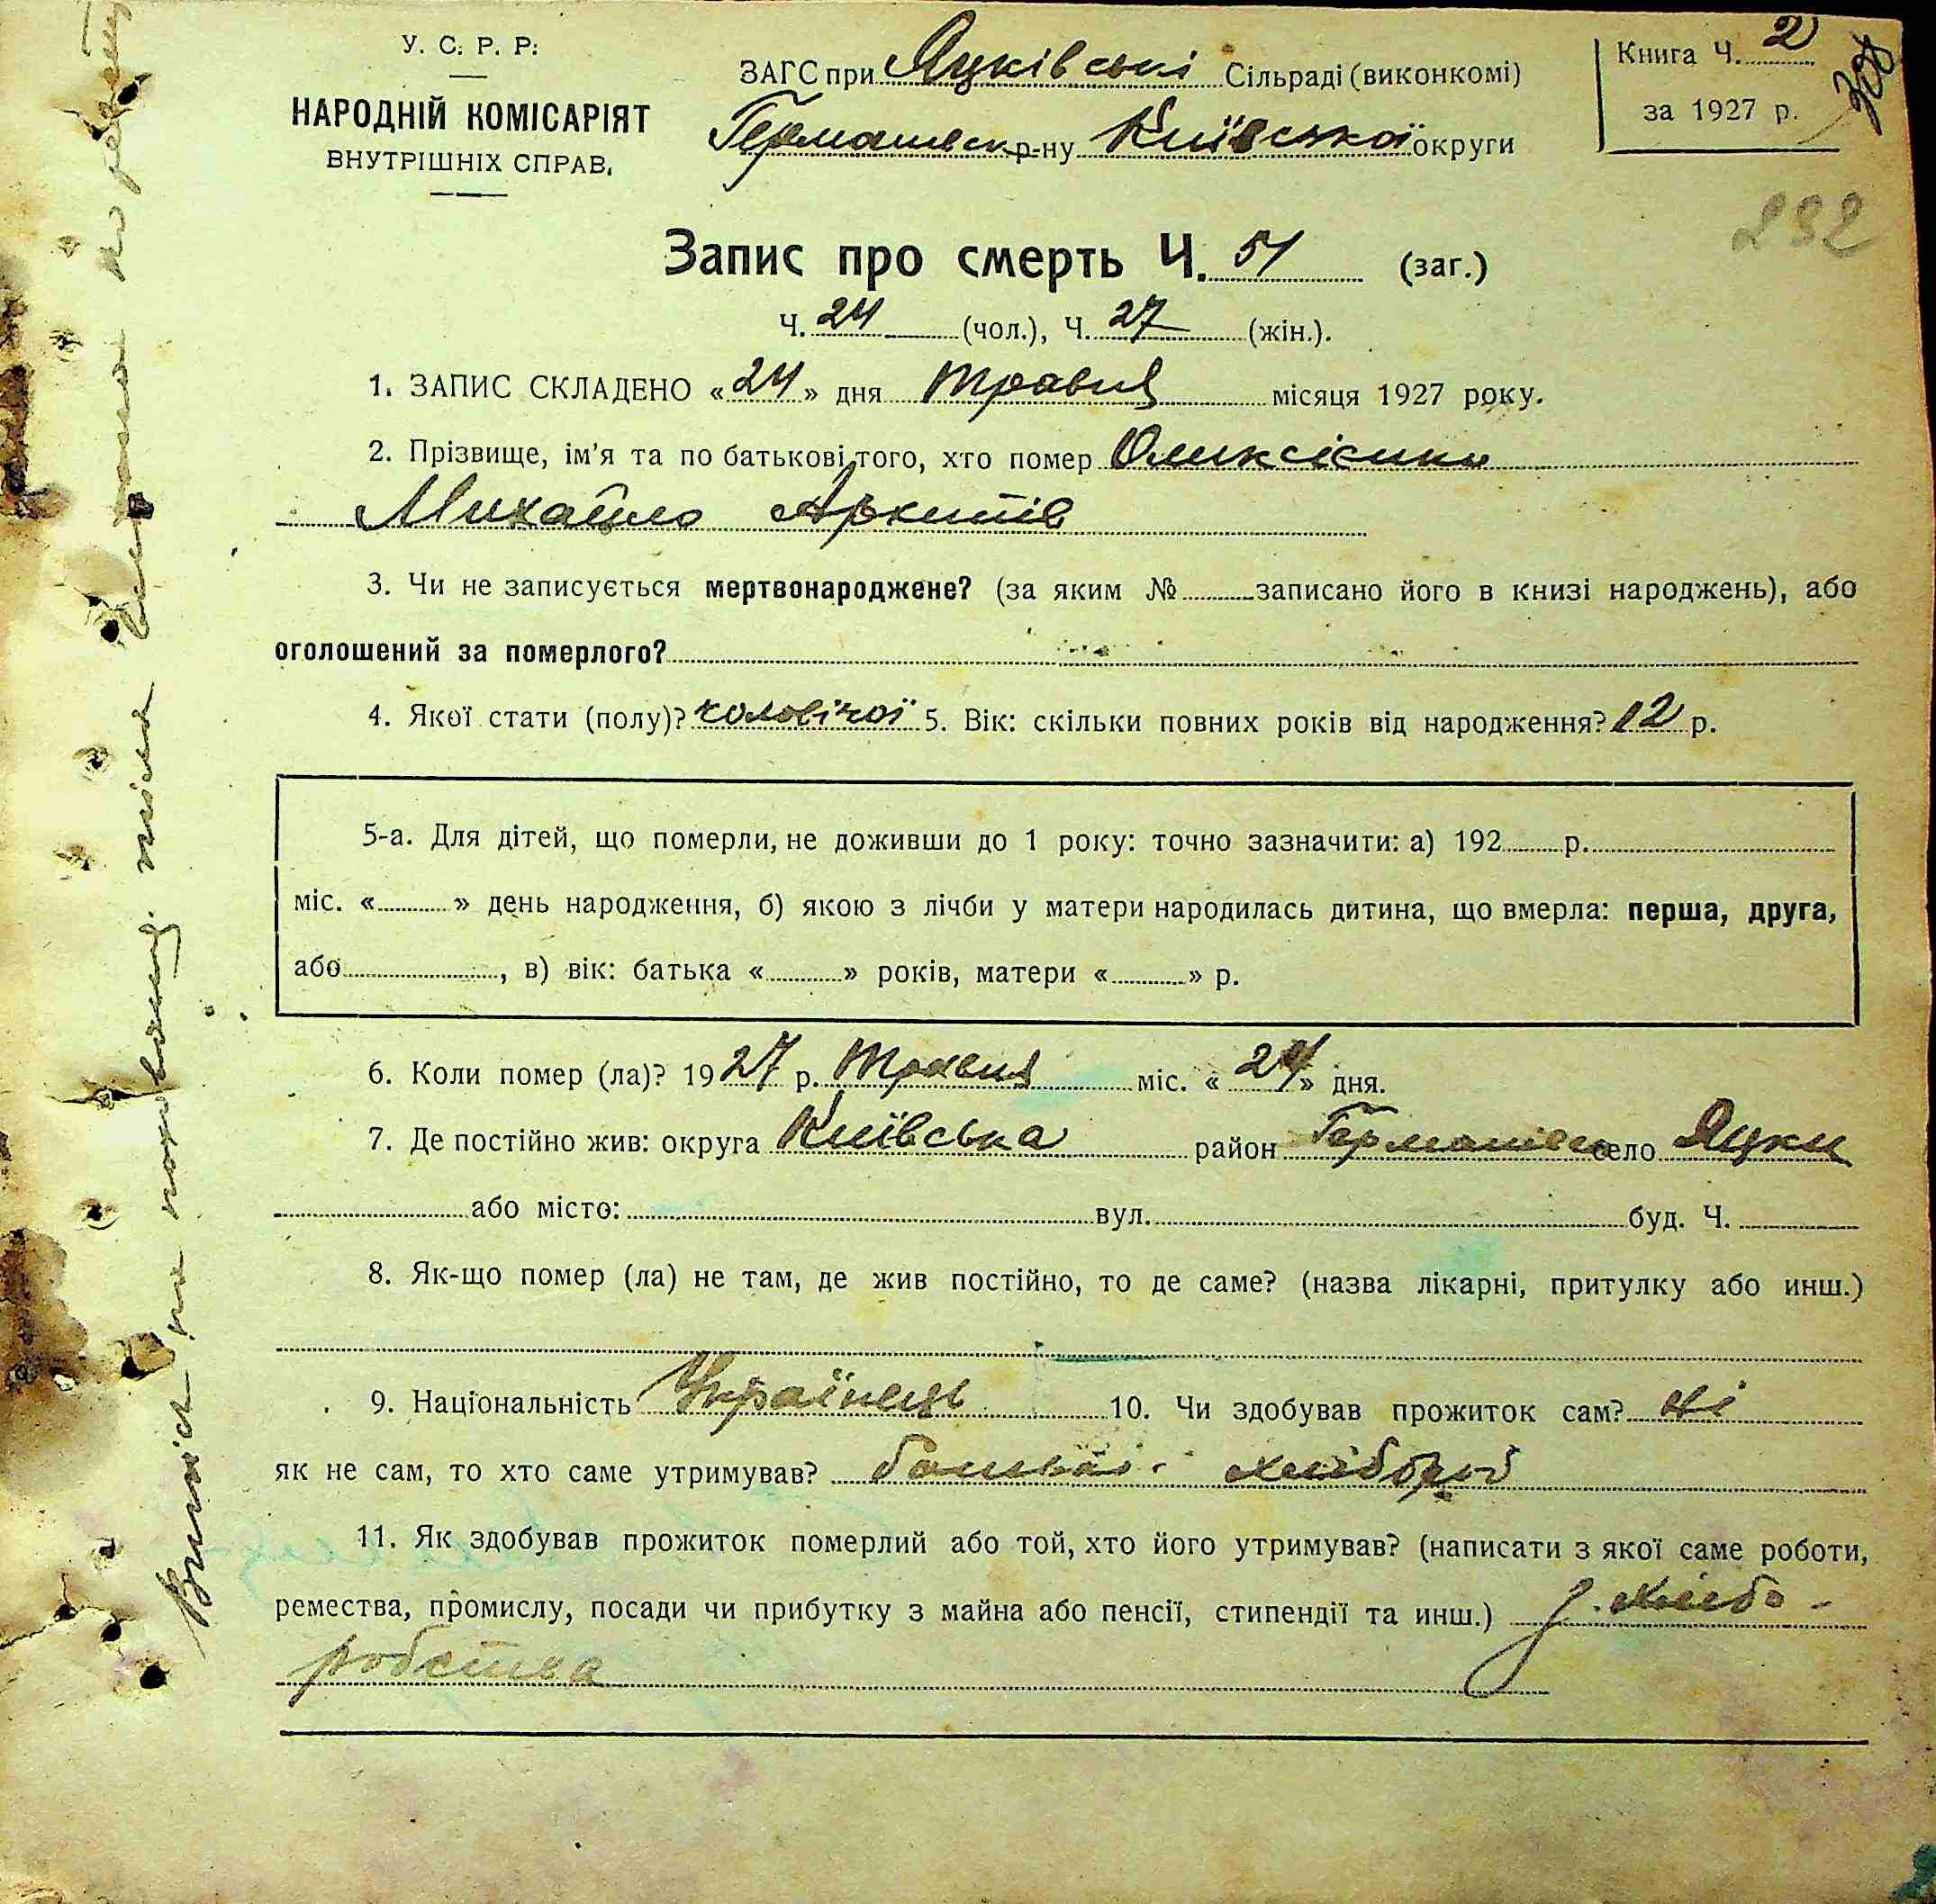 У. С. Р. Р.
НАРОДНІЙ КОМІСАРІЯТ
ВНУТРІШНІХ СПРАВ.
ЗАГС при Яцківські Сільраді (виконкомі)
Германівск р-ну Київської округи
Книга Ч. 2
за 1927 р.
300
292
Запис про смерть Ч. 51 (заг.)
Ч. 24 (чол.), Ч. 27 (жін.).
1. ЗАПИС СКЛАДЕНО «24» дня травня місяця 1927 року.
2. Прізвище, ім'я та по батькові того, хто помер Олексієнко
Михайло Архипів
3. Чи не записується мертвонароджене? (за яким № записано його в книзі народжень), або
оголошений за померлого?
4. Якої стати (полу)? чоловічої 5. Вік: скільки повних років від народження? 12 р.
5-а. Для дітей, що померли, не доживши до 1 року: точно зазначити: а) 192 р.
міс. « » день народження, б) якою з лічби у матери народилась дитина, що вмерла: перша, друга,
або , в) вік: батька « » років, матери « » р.
6. Коли помер (ла)? 1927 р. Травня міс. «24» дня.
7. Де постійно жив: округа Київська район Германівск село Яцки
або місто: вул. буд. Ч.
8. Як-що помер (ла) не там, де жив постійно, то де саме? (назва лікарні, притулку або инш.)
9. Національність Українець 10. Чи здобував прожиток сам? ні
як не сам, то хто саме утримував? батько хлібороб
11. Як здобував прожиток померлий або той, хто його утримував? (написати з якої саме роботи,
ремества, промислу, посади чи прибутку з майна або пенсії, стипендії та инш.) з хлібо-
робства